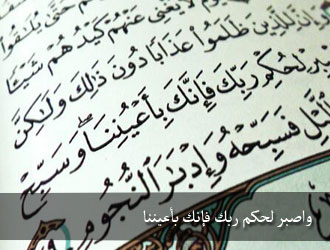 حَتَّىٰ يُلَٰقُوا۟
لَا يُغْنِى عَنْهُمْ كَيْدُهُمْ شَيْـًٔا
وَإِنَّ لِلَّذِينَ ظَلَمُوا۟ عَذَابًا دُونَ ذَٰلِكَ وَلَٰكِنَّ
بِرْ لِحُكْمِ رَبِّكَ فَإِنَّكَ بِأَعْيُنِنَا ۖ وَسَبِّحْ
لَّيْلِ فَسَبِّحْهُ وَإِدْبَٰرَ ٱلنُّجُومِ
واصبر لحكم ربك فإنك بأعيننا